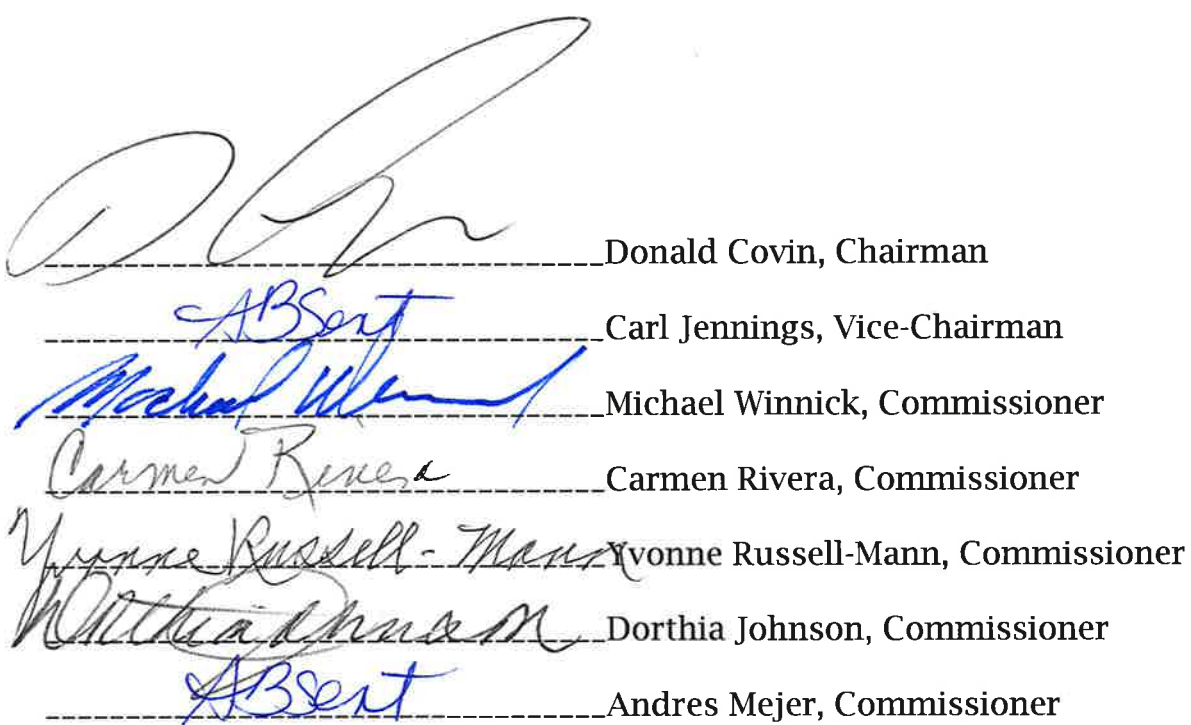 Donald Covin, Chairman
ABSent Carl Jennings, Vice-Chairman
Michael Winnick, Commissioner
Carmen Rivera Carmen Rivera, Commissioner
Yvonne Russell-Mann Yvonne Russell-Mann, Commissioner
Dorthia Johnson, Commissioner
ABSent Andres Mejer, Commissioner